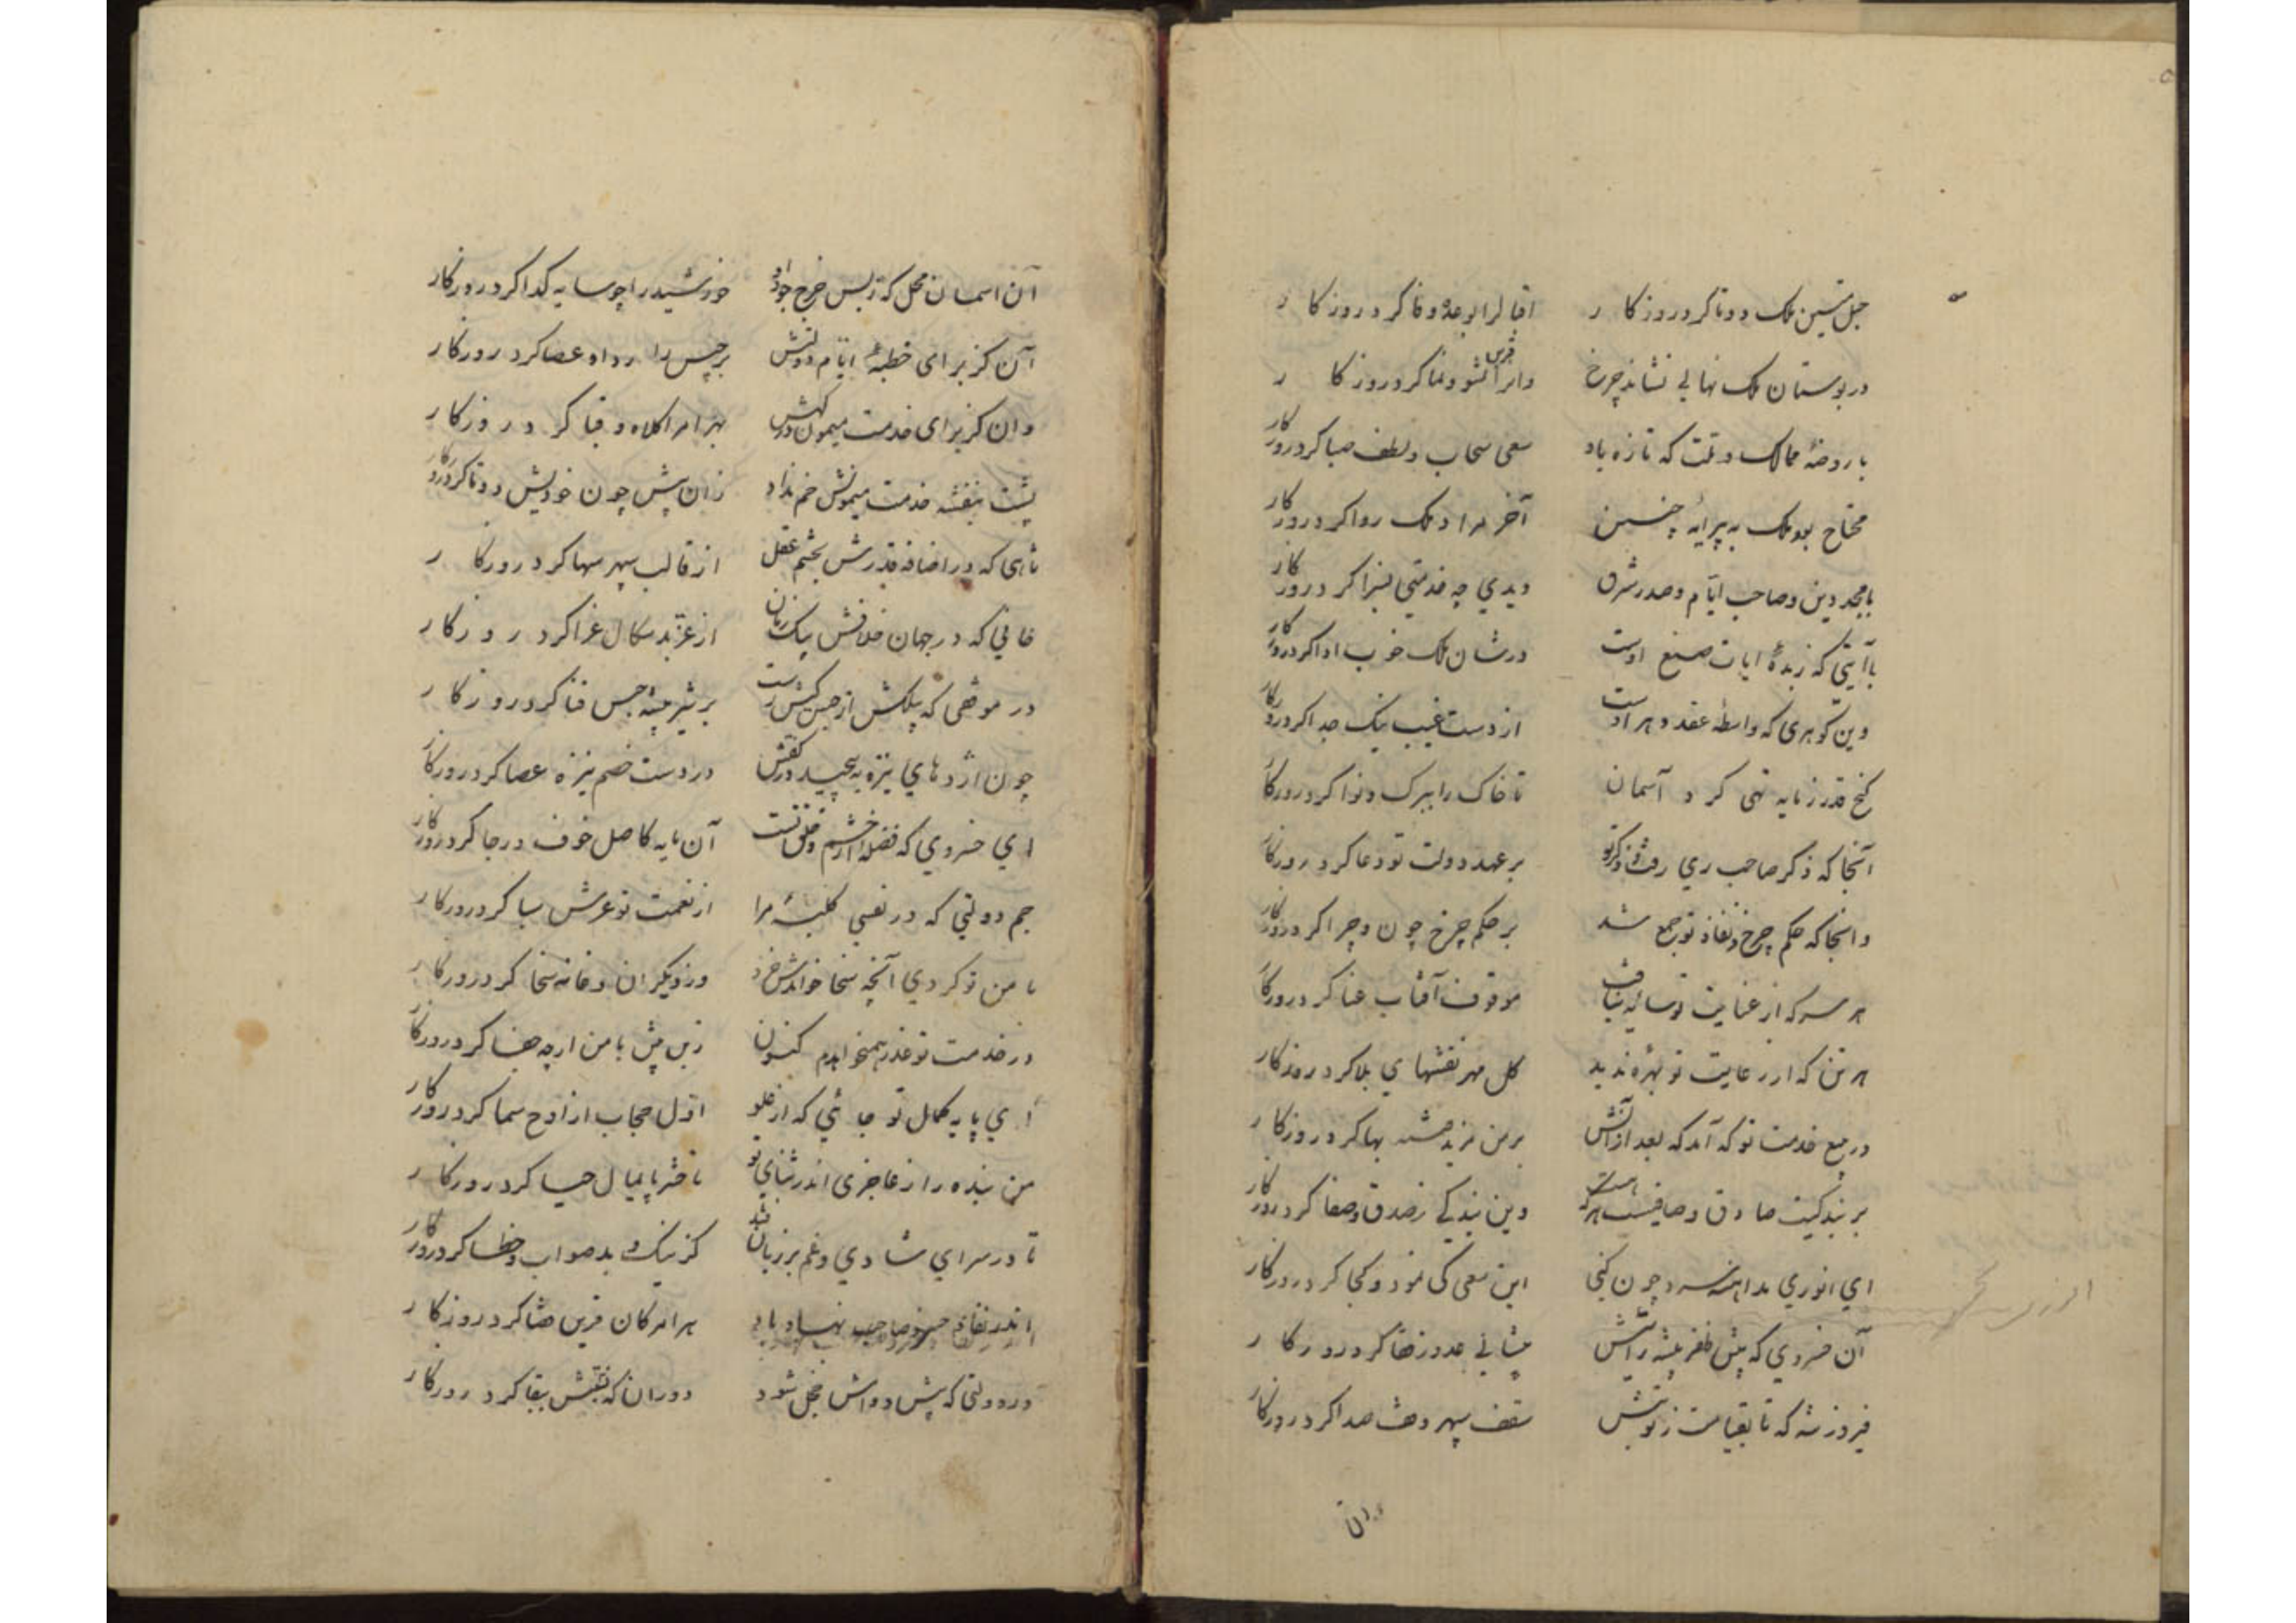 حبل متین ملک دوتا کرد روزکار
اقبالرا بوعده وفا کرد روزکار
در بوستان ملک نهالی نشاند چرخ
وانرا قرین نشو و نما کرد روزکار
با روضهٔ ممالک و ملت که تازه باد
سعی سحاب و لطف صبا کرد روزکار
محتاج بود ملک به پیرایهٔ چنین
آخر مراد ملک روا کرد روزکار
با مجد دین و صاحب ایّام و صدر شرق
دیدی چه خدمتی بسزا کرد روزکار
با آیتی که زبدهٔ ایات صنع اوست
در شان ملک خوب ادا کرد روزکار
وین کوهری که واسطه عقد دهر اوست
از دست غیب نیک جدا کرد روزکار
کنج قدر ز مایه تهی کرد آسمان
تا خاک را ببرک و نوا کرد روزکار
آنجا که ذکر صاحب ری رفت و ذکر تو
بر عهد دولت تو دعا کرد روزکار
وانجا که حکم چرخ و نفاذ تو جمع شد
بر حکم چرخ چون و چرا کرد روزکار
هر سر که از عنایت تو سایهٔ نیافت
موقوف آفتاب عنا کرد روزکار
هر تن که از رعایت تو بهره ندید
کل مهر نقشهای بلا کرد روزکار
در بیع خدمت تو که آمد که بعد از آنش
بر من یزید بها کرد روزکار
بر بندکیت صادق و صافیست هر که هست
وین بندکی ز صدق و صفا کرد روزکار
ای انوری مداهنه سرد چون کنی
این سعی کی نمود و کجا کرد روزکار
آن خسروی که پیش ظفر پیشه رایتش
پیشانی عدو ز قفا کرد روزکار
فیروز شه که تا بقیامت ز نوبتش
سقف سپهر وقف صدا کرد روزکار
آن اسمان محل که ز بس خرج جود او
خورشید را چو سایه کدا کرد روزکار
آن کز برای خطبهٔ ایّام دولتش
برجیس را ردا و عصا کرد روزکار
وان کز برای خدمت میمون درکهش
بهرام را کلاه و قبا کرد روزکار
پشت بنفشه خدمت میمونش خم نداد
زان پیش چون خودیش دوتا کرد روزکار
شاهی که در اضافه قدرش بچشم عقل
از قالب سپهر سها کرد روزکار
خانی که در جهان خلافش بیک زمان
از عزّ بدسکال عزا کرد روزکار
در موقفی که پیلکش از جبن کش رست
بر شیر بیشه حبس فنا کرد روزکار
چون اژدهای نیزه بپیچید در کفش
در دست خصم نیزه عصا کرد روزکار
ای خسروی که فضلهٔ از خشم و خلق تست
آن مایه کاصل خوف و رجا کرد روزکار
جم دولتی که در نفسی کلبهٔ مرا
از نعمت تو عرش سبا کرد روزکار
با من تو کردی آنچه سخا خواندش خرد
ور دیکران و خانه سخا کرد روزکار
در خدمت تو عذر همیخواهدم کنون
زین پیش با من ارچه جفا کرد روزکار
ای پایه کمال تو جائی که از علو
اوّل حجاب از اوج سما کرد روزکار
من بنده را ز عاجزی اندر ثنای تو
تا حشر پایمال حیا کرد روزکار
تا در سرای شادی و غم بر زبان فتد
کز نیک و بد صواب و خطا کرد روزکار
اندر نفاذ خسرو صاحب نهاد باد
هر امر کان قرین قضا کرد روزکار
در دولتی که پیش دوامش خجل شود
دوران که نقشش ببقا کرد روزکار